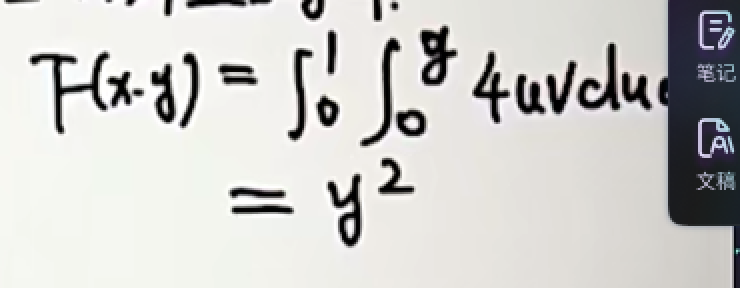 F(x.y) = ∫₀¹ ∫₀^y 4uvdu
= y²
笔记
文稿